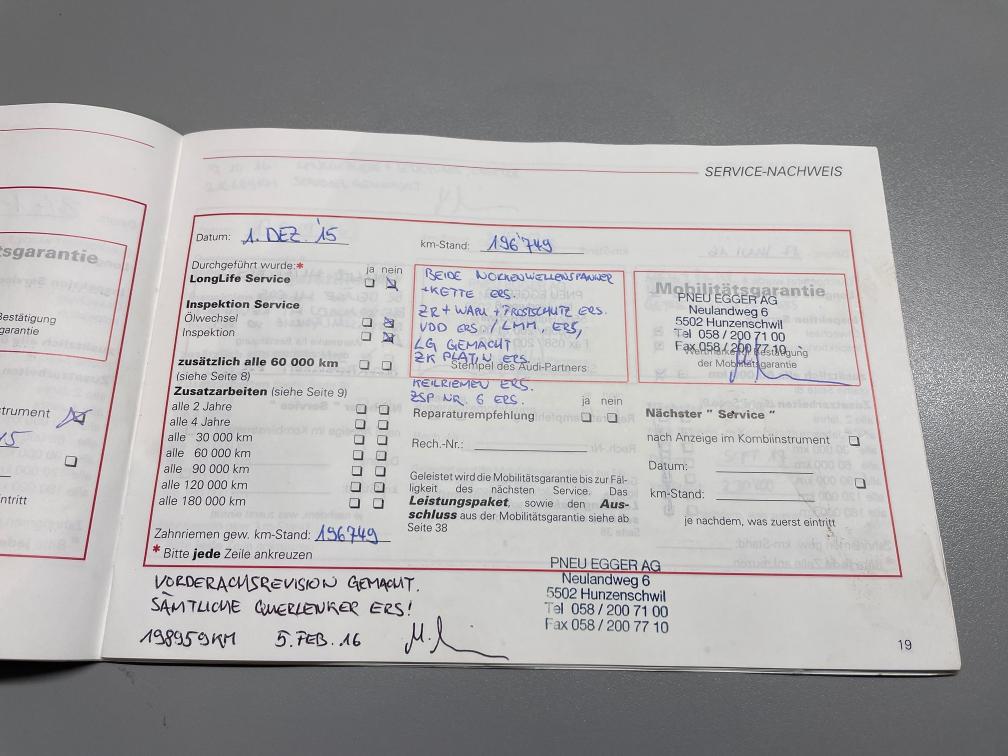 sgarantie
Bestätigung
garantie
strument
15
ntritt
SERVICE-NACHWEIS
Datum: 1. DEZ '15
km-Stand: 196'749
Durchgeführt wurde:* ja nein
LongLife Service
Inspektion Service
Ölwechsel
Inspektion
zusätzlich alle 60 000 km
(siehe Seite 8)
Zusatzarbeiten (siehe Seite 9)
alle 2 Jahre
alle 4 Jahre
alle 30 000 km
alle 60 000 km
alle 90 000 km
alle 120 000 km
alle 180 000 km
Zahnriemen gew. km-Stand: 196749
* Bitte jede Zeile ankreuzen
BEIDE NOCKENWELLENSPANNER
+KETTE ERS.
ZR + WAPU + FROSTSCHUTZ ERS.
VDD ERS / LMM, ERS,
LG GEMACHT
ZK PLATIN ERS.
Stempel des Audi-Partners
KEILRIEMEN ERS.
ZSP NR. 6 ERS.
ja nein
Reparaturempfehlung
Rech.-Nr.:
Geleistet wird die Mobilitätsgarantie bis zur Fäl-
ligkeit des nächsten Service. Das
Leistungspaket, sowie den Aus-
schluss aus der Mobilitätsgarantie siehe ab
Seite 38
Mobilitätsgarantie
PNEU EGGER AG
Neulandweg 6
5502 Hunzenschwil
Tel 058 / 200 71 00
Fax 058 / 200 77 10
Bestätigung
der Mobilitätsgarantie
Nächster " Service "
nach Anzeige im Kombiinstrument
Datum:
km-Stand:
je nachdem, was zuerst eintritt
VORDERACHSREVISION GEMACHT.
SÄMTLICHE QUERLENKER ERS!
198959KM 5. FEB. 16
PNEU EGGER AG
Neulandweg 6
5502 Hunzenschwil
Tel 058 / 200 71 00
Fax 058 / 200 77 10
19